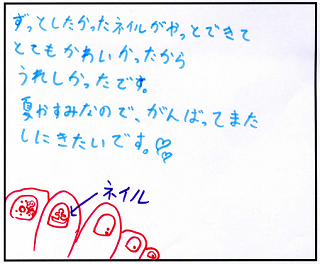 ずっとしたかったネイルがやっとできて
とてもかわいかったから
うれしかったです。
夏かすみなので、がんばってまた
しにきたいです。
ネイル